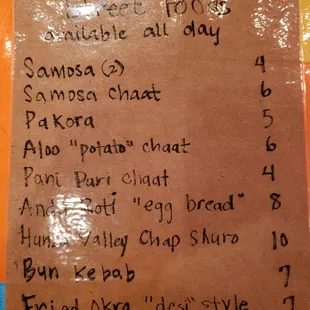 Street Foods
available all day
Samosa (2) 4
Samosa Chaat 6
Pakora 5
Aloo "potato" chaat 6
Pani Puri chaat 4
Anda Roti "egg bread" 8
Hunza Valley Chap Shuro 10
Bun Kebab 7
Fried Okra "desi" style 7